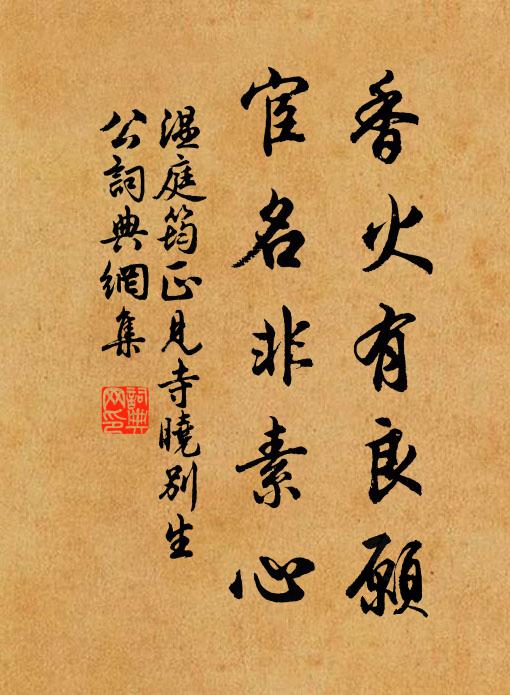 香火有良願
宦名非素心
溫庭筠正見寺曉別生
公詞典網集
詞典網印